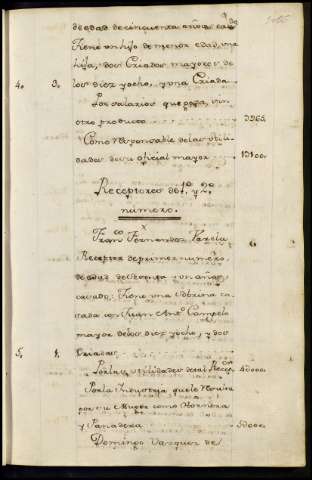 de edad de cinquenta años cas.do
Tiene un hijo de menor edad, una
hija, dos Criados mayores de
4. 3. los diez y ocho, y una Criada
Por salarios que goza, sin
otro producto 3965.
Como Responsable de las utili
dades de su oficial mayor
Receptores de 1.º y 2.º
número.
Fran.co Fernandez Varela 6
Receptor de primer numero,
de edad de sesenta y un años
casado: Tiene una sobrina ca
sada con Juan Ant.º Campelo
maior de los diez y ocho, y dos
5. 1. Criadas
Por las utilidades de tal Recep.on 4000.
Por la Industria que le
por su Muger como Hornera
y Panadera 5000.
Domingo Vazquez de